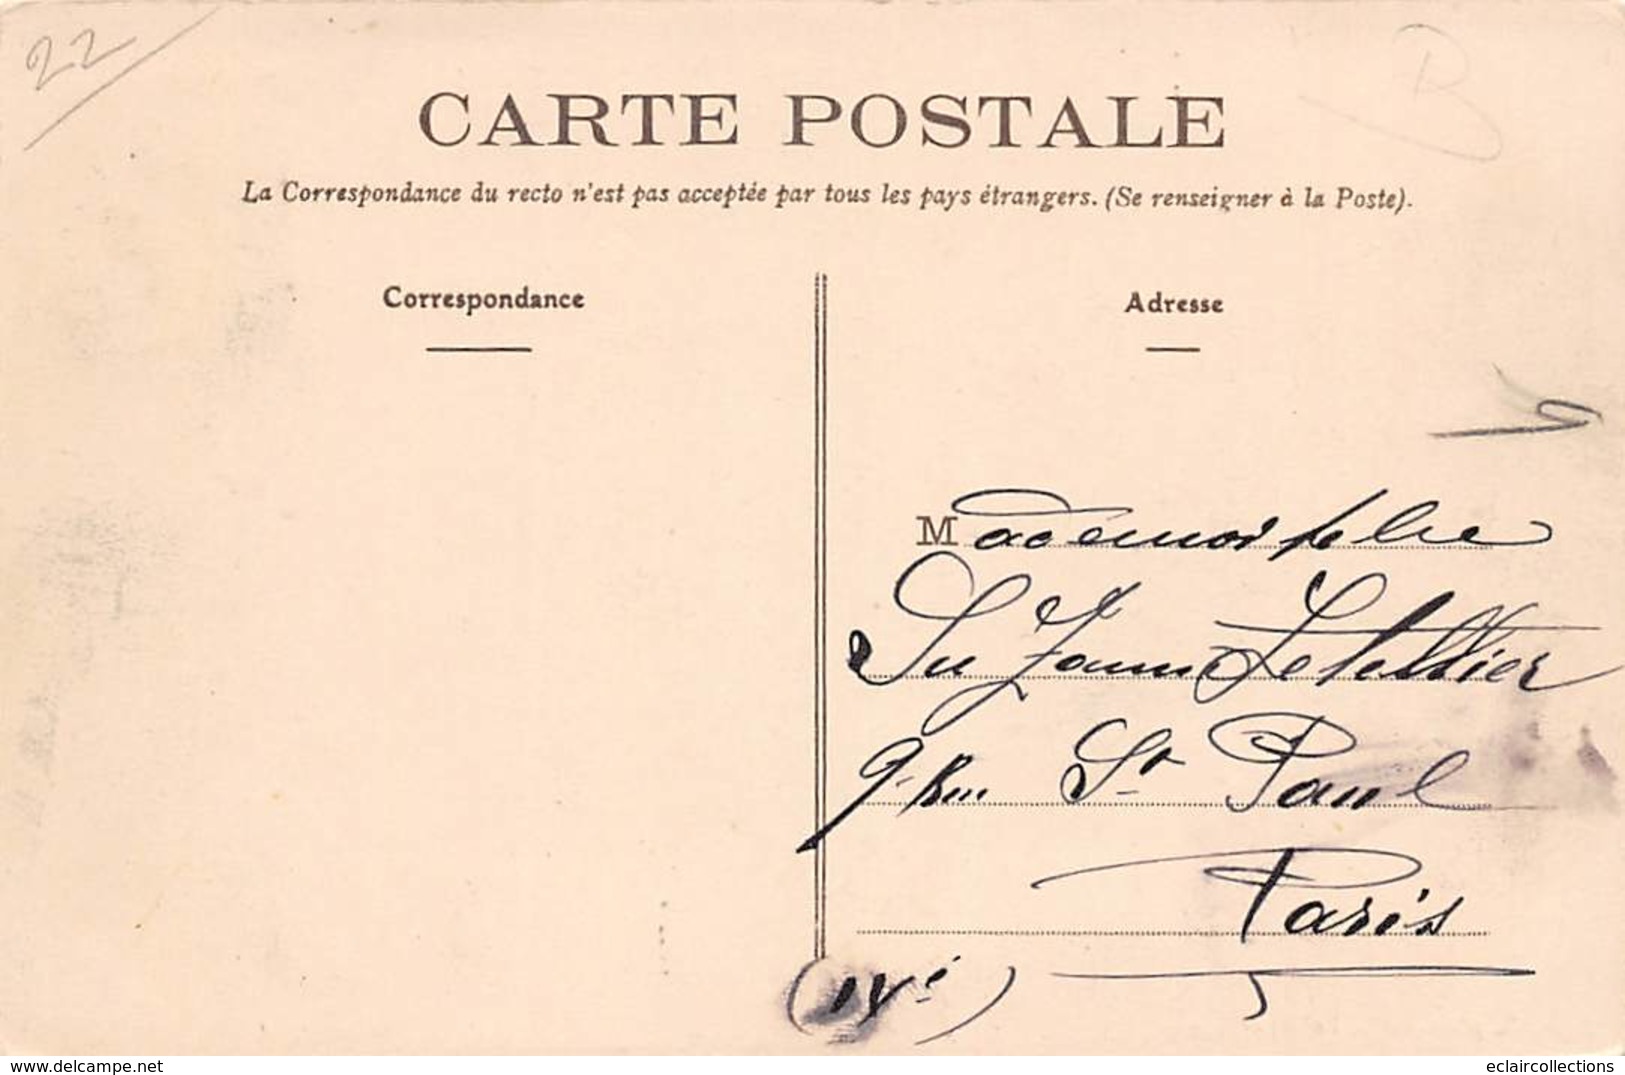 22
B
CARTE POSTALE
La Correspondance du recto n'est pas acceptée par tous les pays étrangers. (Se renseigner à la Poste).
Correspondance
Adresse
Mademoiselle
Suzanne Letellier
9 Rue St Paul
Paris
(IVe)
www.delcampe.net
eclaircollections